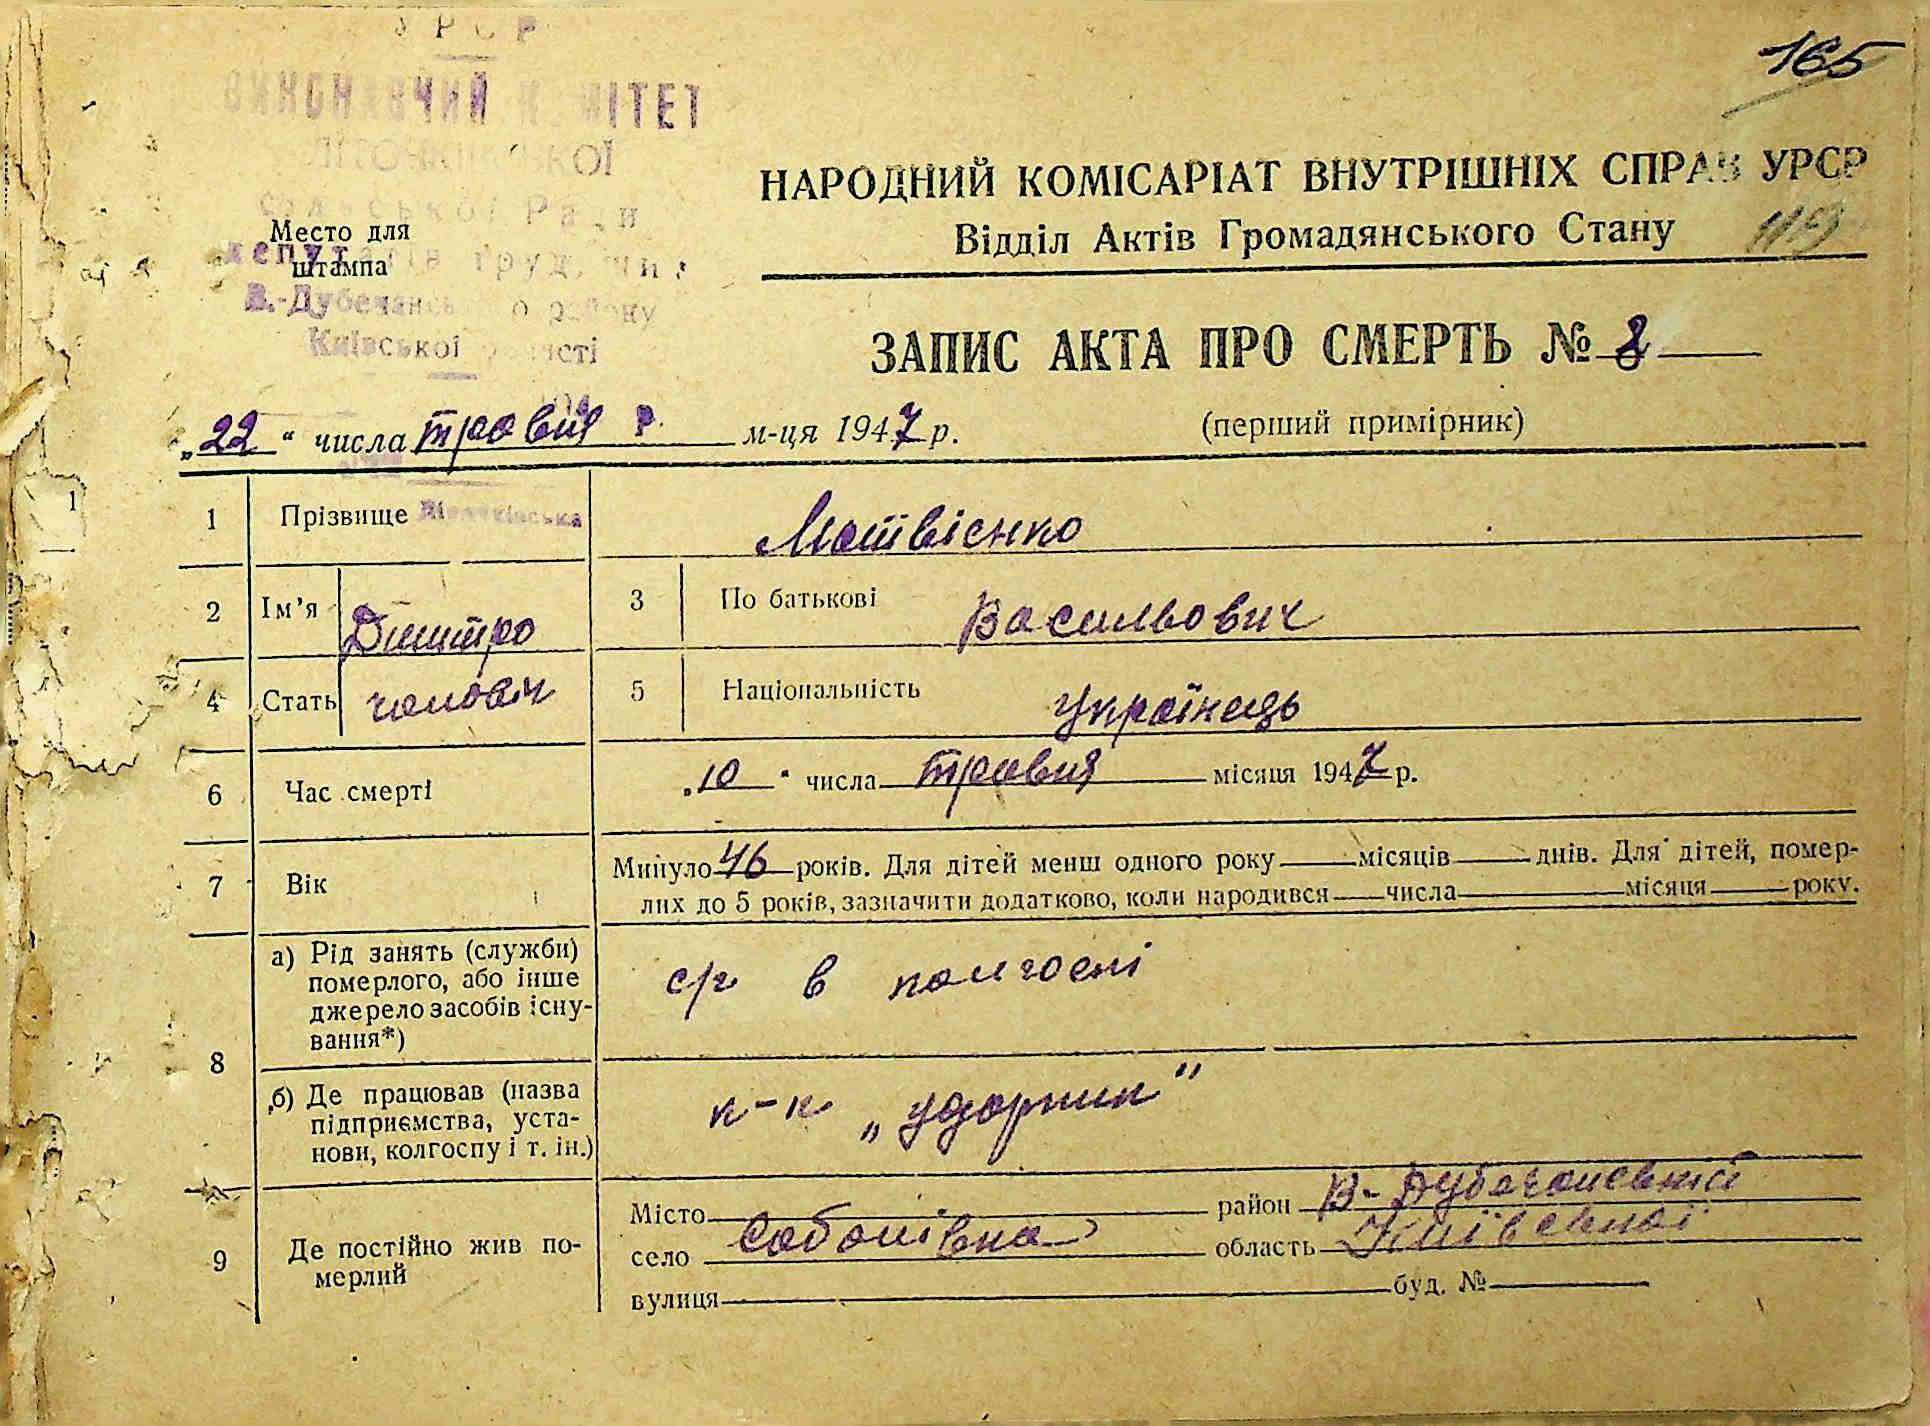 УРСР
ВИКОНАВЧИЙ КОМІТЕТ
Ради
В.-Дубечанського району
Київської області
Место для
штампа
165
НАРОДНИЙ КОМІСАРІАТ ВНУТРІШНІХ СПРАВ УРСР
Відділ Актів Громадянського Стану
119
ЗАПИС АКТА ПРО СМЕРТЬ № 8
(перший примірник)
„22“ числа травня м-ця 1947 р.
1 Прізвище Матвієнко
2 Ім’я Дмитро 3 По батькові Васильович
4 Стать чоловіч 5 Національність Українець
6 Час смерті „10“ числа травня місяця 1947 р.
7 Вік Минуло 46 років. Для дітей менш одного року місяців днів. Для дітей, помер-
лих до 5 років, зазначити додатково, коли народився числа місяця року.
8 а) Рід занять (служби)
померлого, або інше
джерело засобів існу-
вання*)
с/г в колгоспі
б) Де працював (назва
підприємства, уста-
нови, колгоспу і т. ін.)
к-п „ударник“
9 Де постійно жив по-
мерлий
Місто район В-Дубечанський
село область Київської
вулиця буд. №